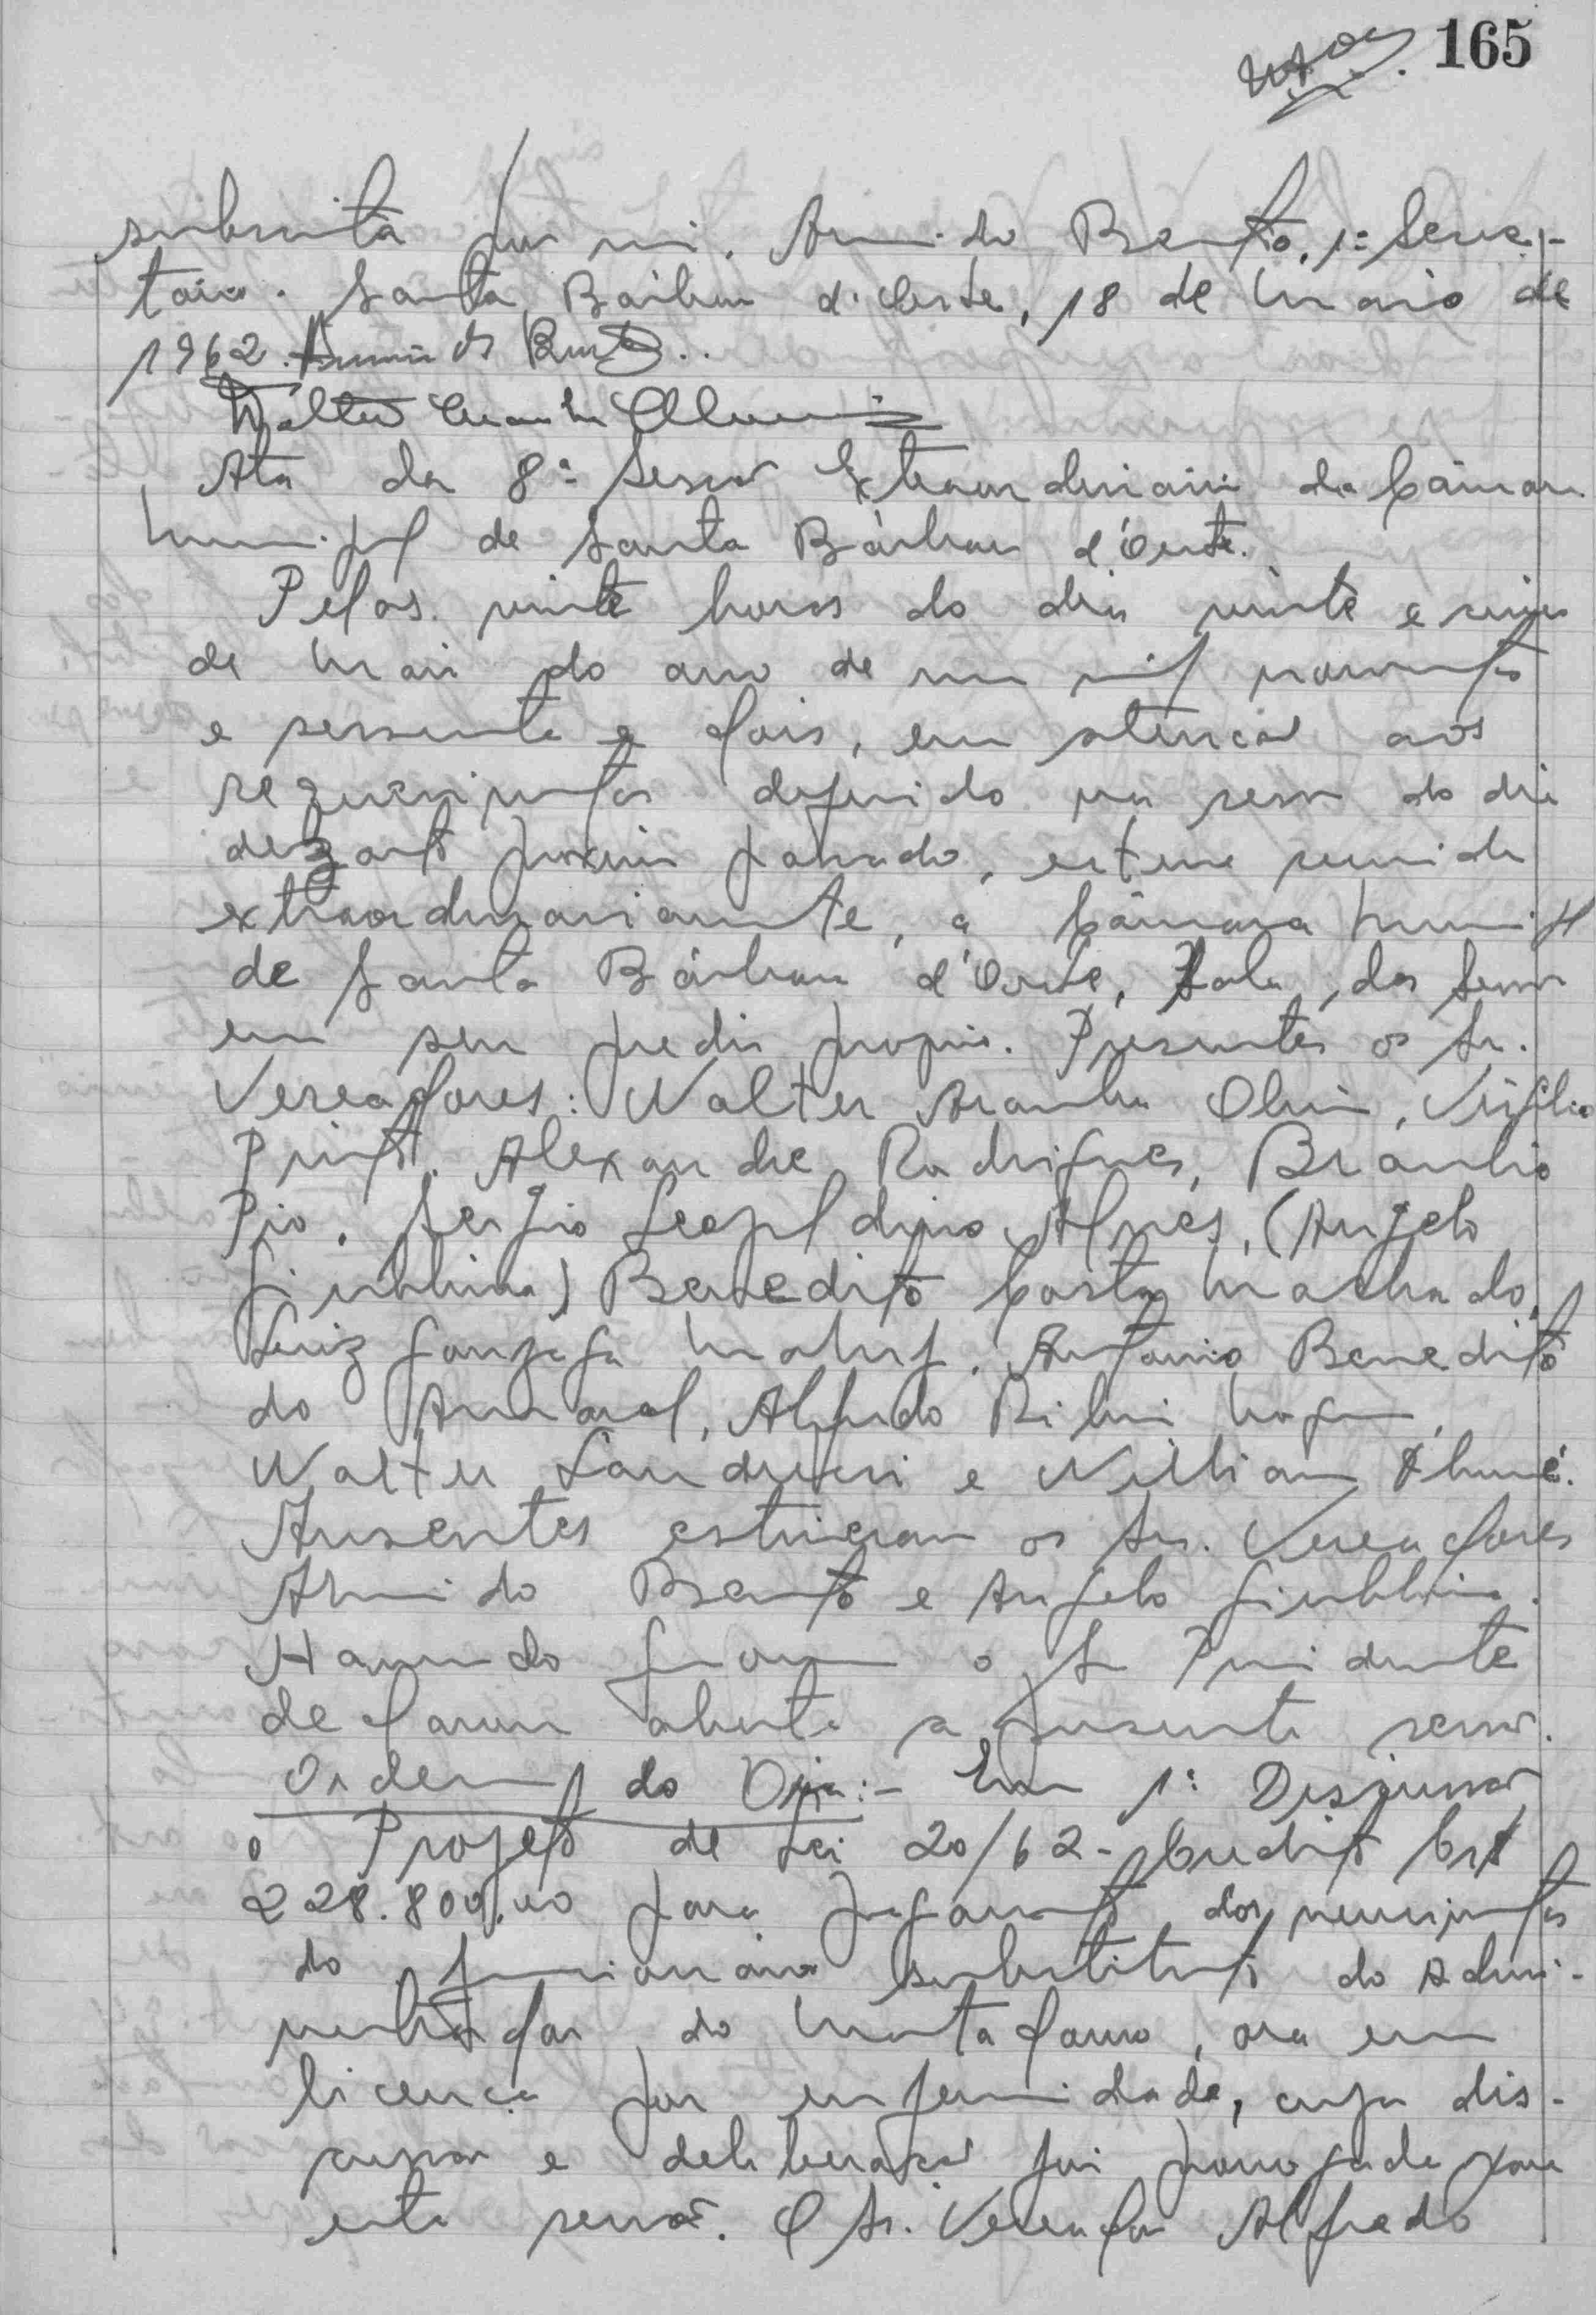 165
subscrita por mim, Armindo Bento, 1º Secre-
tário. Santa Bárbara d'Oeste, 18 de Maio de
1962. Armindo Bento..
Walter Aranha
Ata da 8ª Sessão Extraordinária da Câmara
Municipal de Santa Bárbara d'Oeste.
Pelas vinte horas do dia vinte e cinco
de Maio do ano de um mil novecentos
e sessenta e dois, em atenção aos
requerimentos deferido na sessão do dia
dezoito próximo passado, esteve reunida
extraordinariamente, a Câmara Municipal
de Santa Bárbara d'Oeste, Sala das Sessões
em seu prédio próprio. Presentes os Srs.
Vereadores: Walter Aranha, Virgílio
Pinto, Alexandre Rodrigues, Braulio
Pio, Sergio Leopoldino Alves, (Angelo
Giubbina) Benedito Costa Machado,
Luiz Gonzaga, Antonio Benedito
do Amaral, Alfredo
Walter Landucci e Willian
Ausentes estiveram os Srs. Vereadores
Armindo Bento e Angelo Giubbina.
Havendo o Sr Presidente
declarou aberta a presente sessão.
Ordem do Dia:- Em 1ª Discussão
o Projeto de Lei 20/62 - Credito Cr$
228.800,00 para pagamento dos vencimentos
do funcionário substituto do Admi-
nistrador do Matadouro, ora em
licença por enfermidade, cuja dis-
cussão e deliberação foi prorrogada para
esta sessão. O Sr. Vereador Alfredo